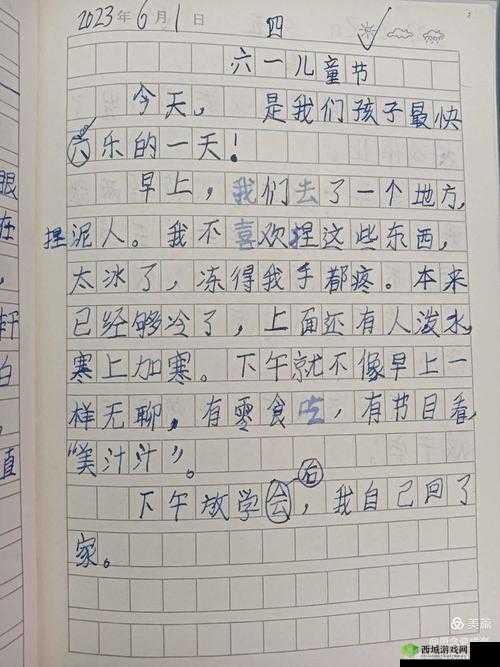 2023年6月1日 四
六一儿童节
今天，是我们孩子最快
乐的一天！
早上，我们去了一个地方，
捏泥人。我不喜欢捏这些东西，
太冰了，冻得我手都疼。本来
已经够冷了，上面还有人泼水，
寒上加寒。下午就不像早上一
样无聊，有零食吃，有节目看，
“美汁汁”。
后
下午放学会，我自己回了
家。
眼
在
轩
白
直
美篇
西城游戏网